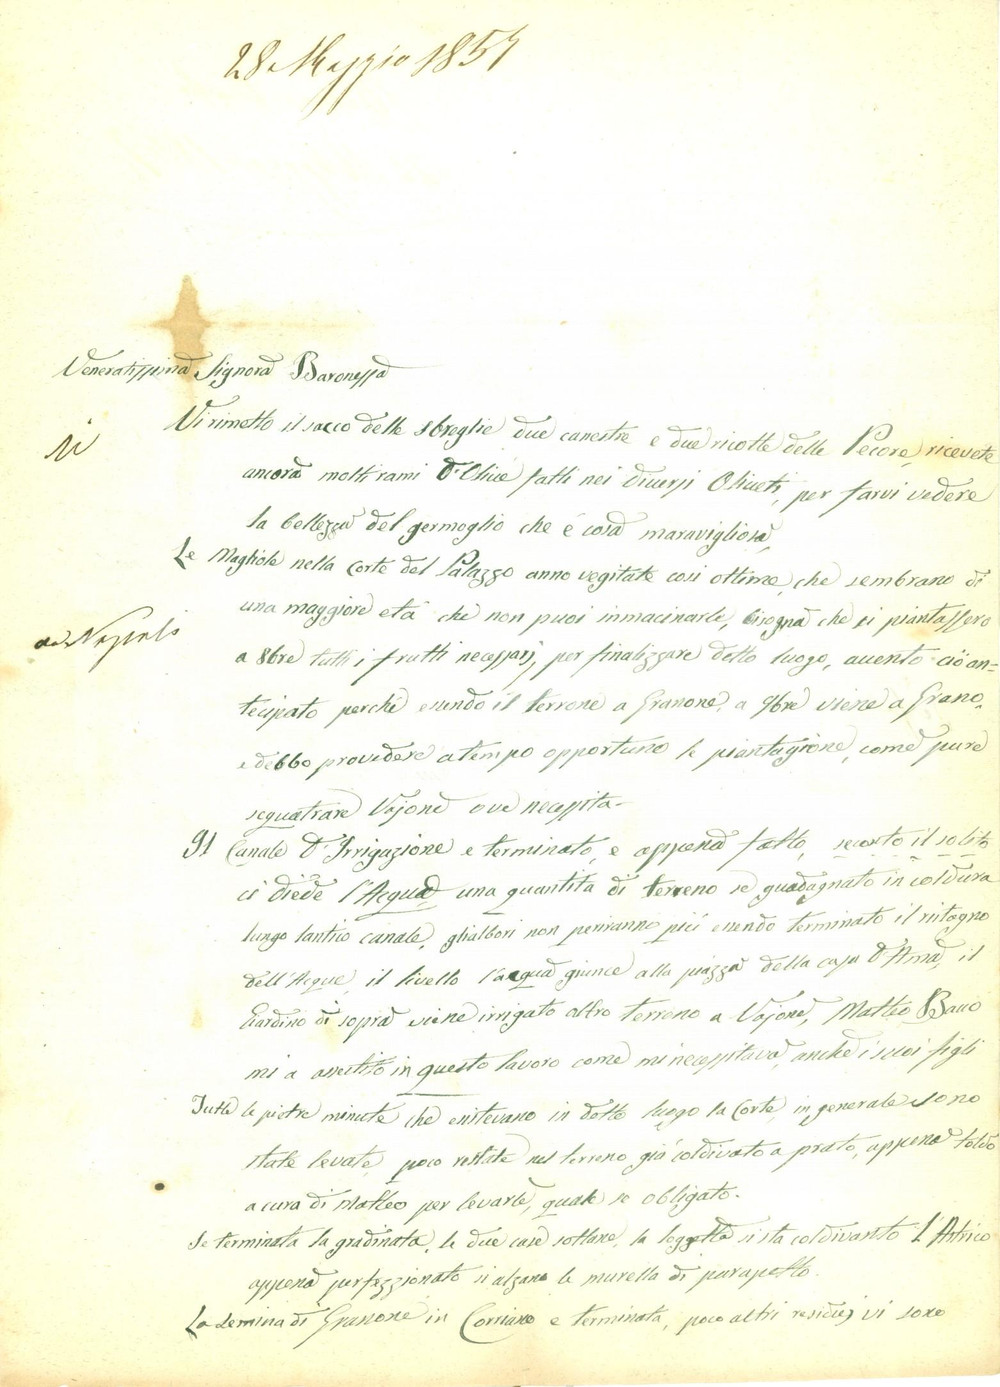 28 Maggio 1857
Veneratissima Signora Baronessa
Vi rimetto il sacco delle sbreglie due canestre e due ricotte delle Pecore, ricevete
ancora molti rami d'Olive fatti nei diversi Oliveti, per farvi vedere
la bellezza del germoglio che é cosa maravigliosa,
Le Magliole nella Corte del Palazzo anno vegitate cosi ottime, che sembrano di
una maggiore etá che non puoi immacinarle, bisogna che si piantassero
a 8bre tutti i frutti necessarj, per finalizzare detto luogo, avento ció an=
ad Napoli
tecipato perché essendo il terrone a Granone, a 9bre viene a Grano,
e debbo provedere a tempo opportuno le piantagione, come pure
sequatrare Vajone ove necessita-
Il Canale D'Irrigazione e terminato, e appena fatto, secosto il solito
ci diede l'Acqua, una quantita di terreno se guadagnato in coldura
lungo lantrio canale, glialbori non periranno piú essendo terminato il ritogno
dell'Acque, il livello l'acqua giunce alla piazza della casa D'Ama, il
Giardino di sopra viene irrigato altro terreno a Vajone, Matteo Bacco
mi a assistito in questo lavoro come mi necessitava, anche i suoi figli
Tutte le pietre minute che esistevano in detto luogo la Corte, in generale sono
state levate, poco restate nel terreno giá coldivato a prato, appena
a cura di Matteo per levarle, quale se obligato.
Se terminata la gradinata, le due case sottane, la loggetta si sta coldivanto L'Atrico
appena perfezzionato si alzano le murella di parapetto.
La Semina di Granone in Corriano e terminata, poco altri residej vi sono